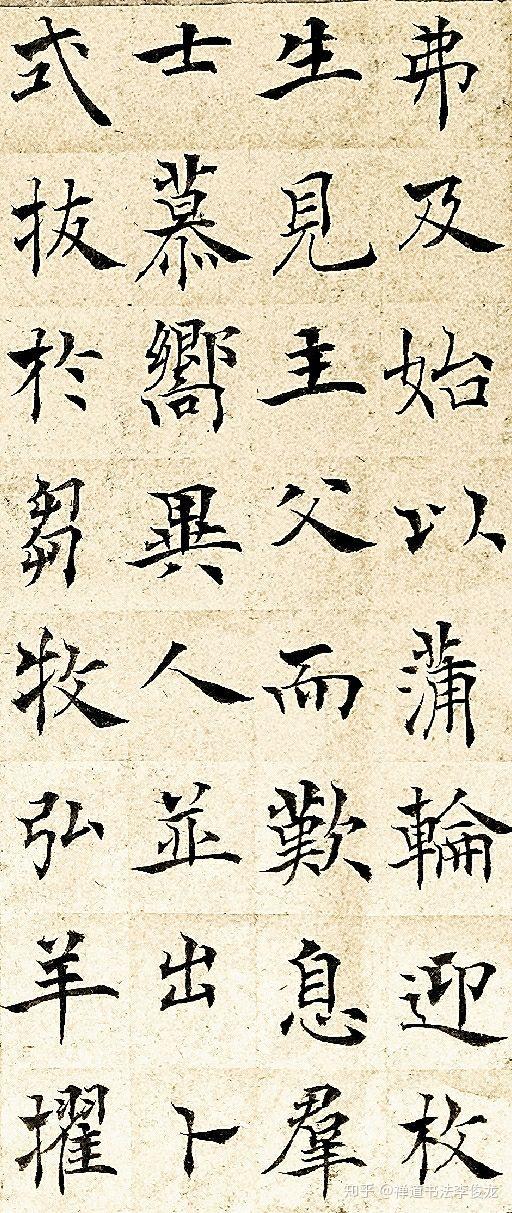 弗及始以蒲輪迎枚
生見主父而歎息羣
士慕嚮異人並出卜
式拔於芻牧弘羊擢
知乎 @禅道书法李俊龙